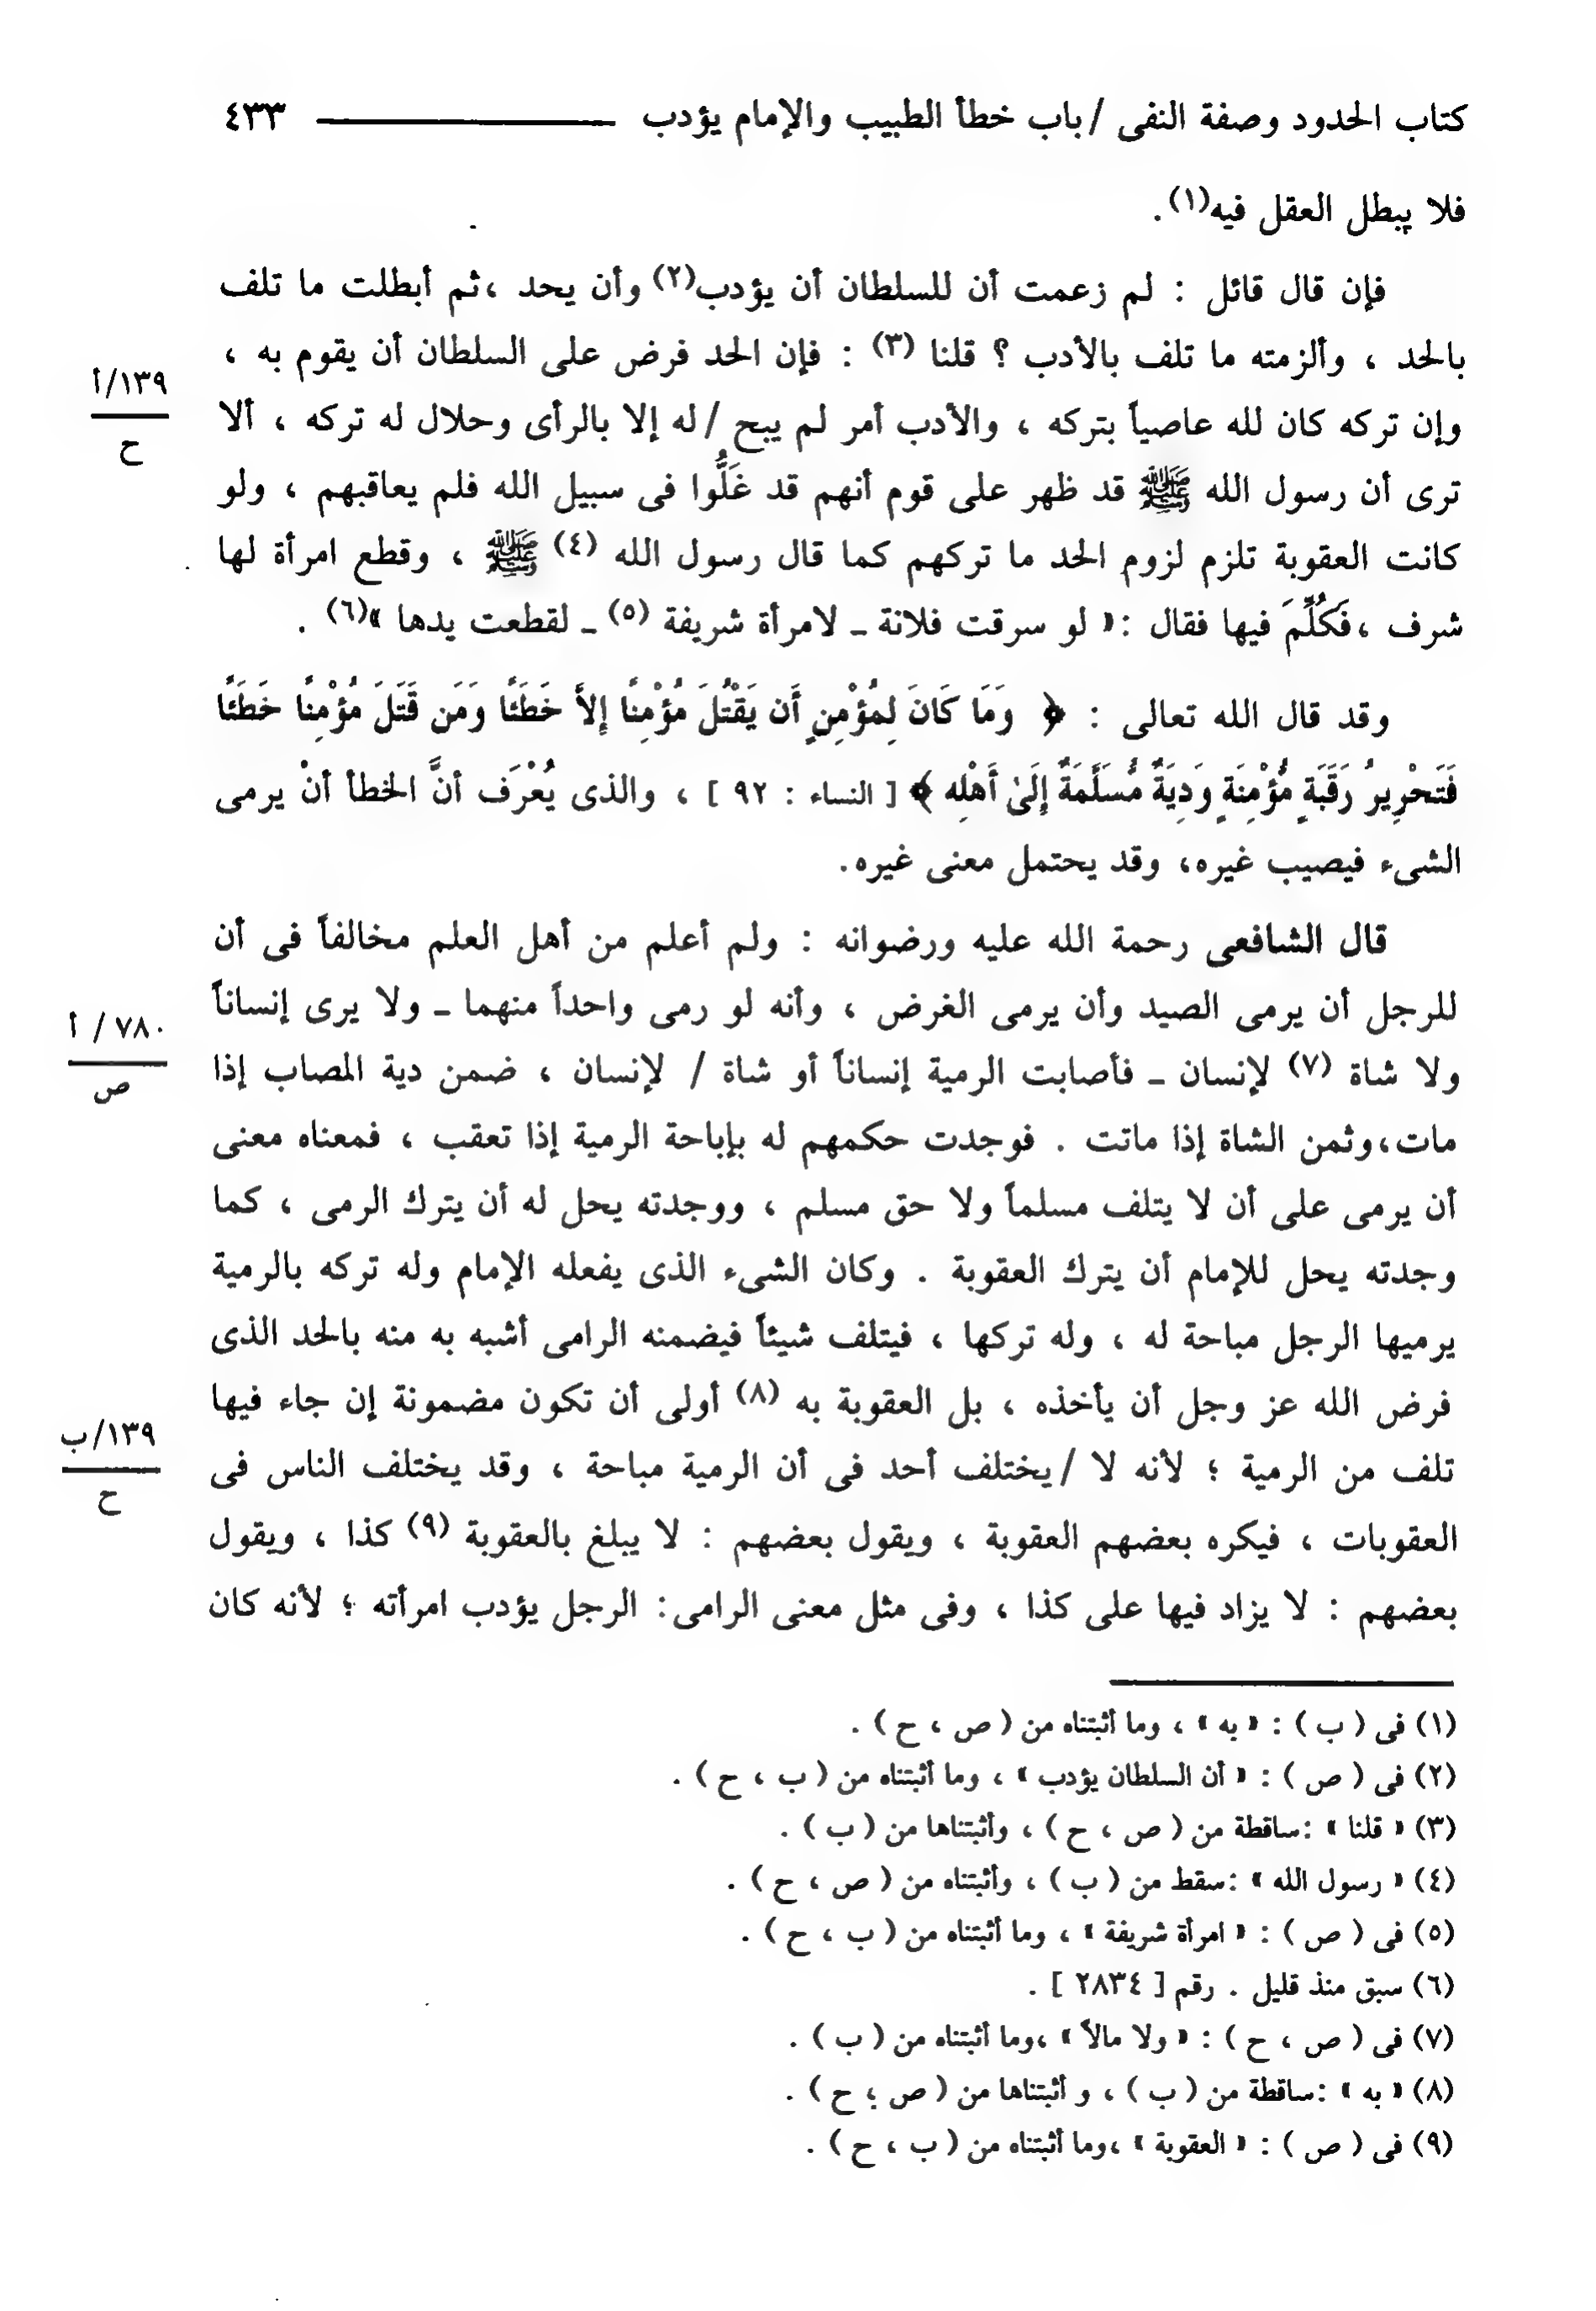 كتاب الحدود وصفة النفى / باب خطأ الطبيب والإمام يؤدب ــــــــــــ ٤٣٣
فلا يبطل العقل فيه(١).
فإن قال قائل : لم زعمت أن للسلطان أن يؤدب(٢) وأن يحد ،ثم أبطلت ما تلف
بالحد ، وألزمته ما تلف بالأدب ؟ قلنا (٣) : فإن الحد فرض على السلطان أن يقوم به ،
١٣٩/أ
وإن تركه كان لله عاصياً بتركه ، والأدب أمر لم يبح /له إلا بالرأى وحلال له تركه ، ألا
ح
ترى أن رسول الله ﷺ قد ظهر على قوم أنهم قد غَلُّوا فى سبيل الله فلم يعاقبهم ، ولو
كانت العقوبة تلزم لزوم الحد ما تركهم كما قال رسول الله (٤) ﷺ ، وقطع امرأة لها
شرف ،فَكُلِّمَ فيها فقال :« لو سرقت فلانة ـ لامرأة شريفة (٥) ـ لقطعت يدها »(٦) .
وقد قال الله تعالى : ﴿ وَمَا كَانَ لِمُؤْمِنٍ أَن يَقْتُلَ مُؤْمِنًا إِلاَّ خَطَئًا وَمَن قَتَلَ مُؤْمِنًا خَطَئًا
فَتَحْرِيرُ رَقَبَةٍ مُّؤْمِنَةٍ وَدِيَةٌ مُّسَلَّمَةٌ إِلَىٰ أَهْلِه ﴾ [ النساء : ٩٢ ] ، والذى يُعْرَف أنَّ الخطأ أنْ يرمى
الشىء فيصيب غيره، وقد يحتمل معنى غيره.
قال الشافعى رحمة الله عليه ورضوانه : ولم أعلم من أهل العلم مخالفاً فى أن
للرجل أن يرمى الصيد وأن يرمى الغرض ، وأنه لو رمى واحداً منهما ـ ولا يرى إنساناً
٧٨٠ / أ
ولا شاة (٧) لإنسان ـ فأصابت الرمية إنساناً أو شاة / لإنسان ، ضمن دية المصاب إذا
ص
مات،وثمن الشاة إذا ماتت . فوجدت حكمهم له بإباحة الرمية إذا تعقب ، فمعناه معنى
أن يرمى على أن لا يتلف مسلماً ولا حق مسلم ، ووجدته يحل له أن يترك الرمى ، كما
وجدته يحل للإمام أن يترك العقوبة . وكان الشىء الذى يفعله الإمام وله تركه بالرمية
يرميها الرجل مباحة له ، وله تركها ، فيتلف شيئاً فيضمنه الرامى أشبه به منه بالحد الذى
فرض الله عز وجل أن يأخذه ، بل العقوبة به (٨) أولى أن تكون مضمونة إن جاء فيها
١٣٩/ب
تلف من الرمية ؛ لأنه لا /يختلف أحد فى أن الرمية مباحة ، وقد يختلف الناس فى
ح
العقوبات ، فيكره بعضهم العقوبة ، ويقول بعضهم : لا يبلغ بالعقوبة (٩) كذا ، ويقول
بعضهم : لا يزاد فيها على كذا ، وفى مثل معنى الرامى: الرجل يؤدب امرأته ؛ لأنه كان
(١) فى ( ب ) : « به » ، وما أثبتناه من ( ص ، ح ) .
(٢) فى ( ص ) : « أن السلطان يؤدب » ، وما أثبتناه من ( ب ، ح ) .
(٣) « قلنا » :ساقطة من ( ص ، ح ) ، وأثبتناها من ( ب ) .
(٤) « رسول الله » :سقط من ( ب ) ، وأثبتناه من ( ص ، ح ) .
(٥) فى ( ص ) : « امرأة شريفة » ، وما أثبتناه من ( ب ، ح ) .
(٦) سبق منذ قليل . رقم [ ٢٨٣٤ ] .
(٧) فى ( ص ، ح ) : « ولا مالاً » ،وما أثبتناه من ( ب ) .
(٨) « به » :ساقطة من ( ب ) ، و أثبتناها من ( ص ؛ ح ) .
(٩) فى ( ص ) : « العقوبة » ،وما أثبتناه من ( ب ، ح ) .